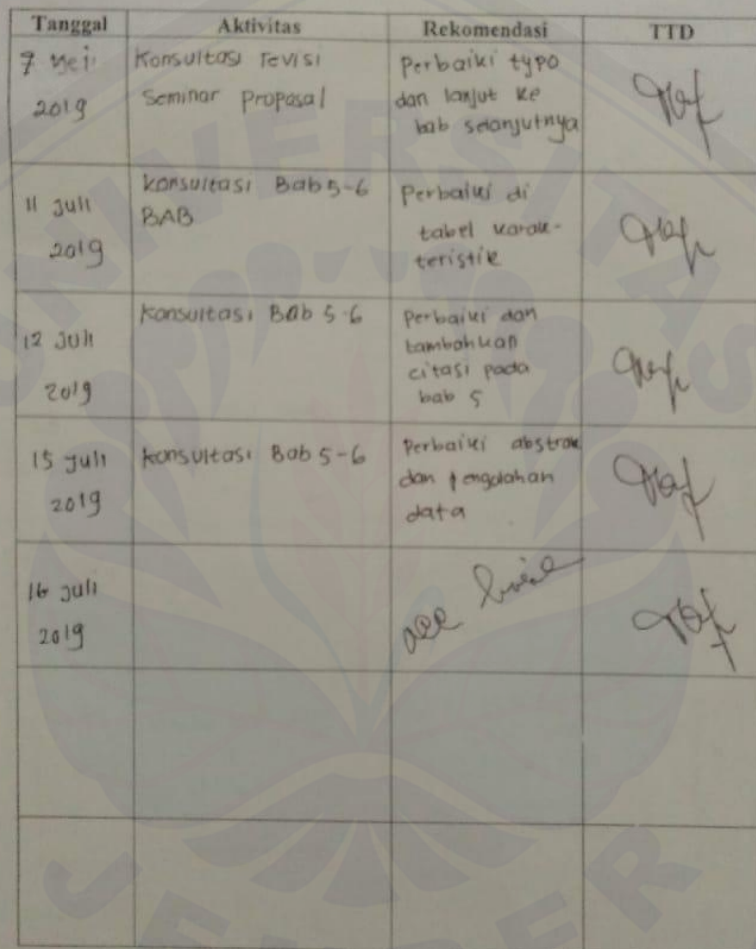 Tanggal Aktivitas Rekomendasi TTD
7 Mei 2019
Konsultasi revisi
Seminar Proposal
Perbaiki typo
dan lanjut ke
bab selanjutnya
11 Juli
2019
Konsultasi Bab 5-6
BAB
Perbaiki di
tabel karak-
teristik
12 Juli
2019
Konsultasi Bab 5-6
Perbaiki dan
tambahkan
citasi pada
bab 5
15 Juli
2019
Konsultasi Bab 5-6
Perbaiki abstrak
dan pengolahan
data
16 Juli
2019
acc
UNIVERSITAS
JEMBER